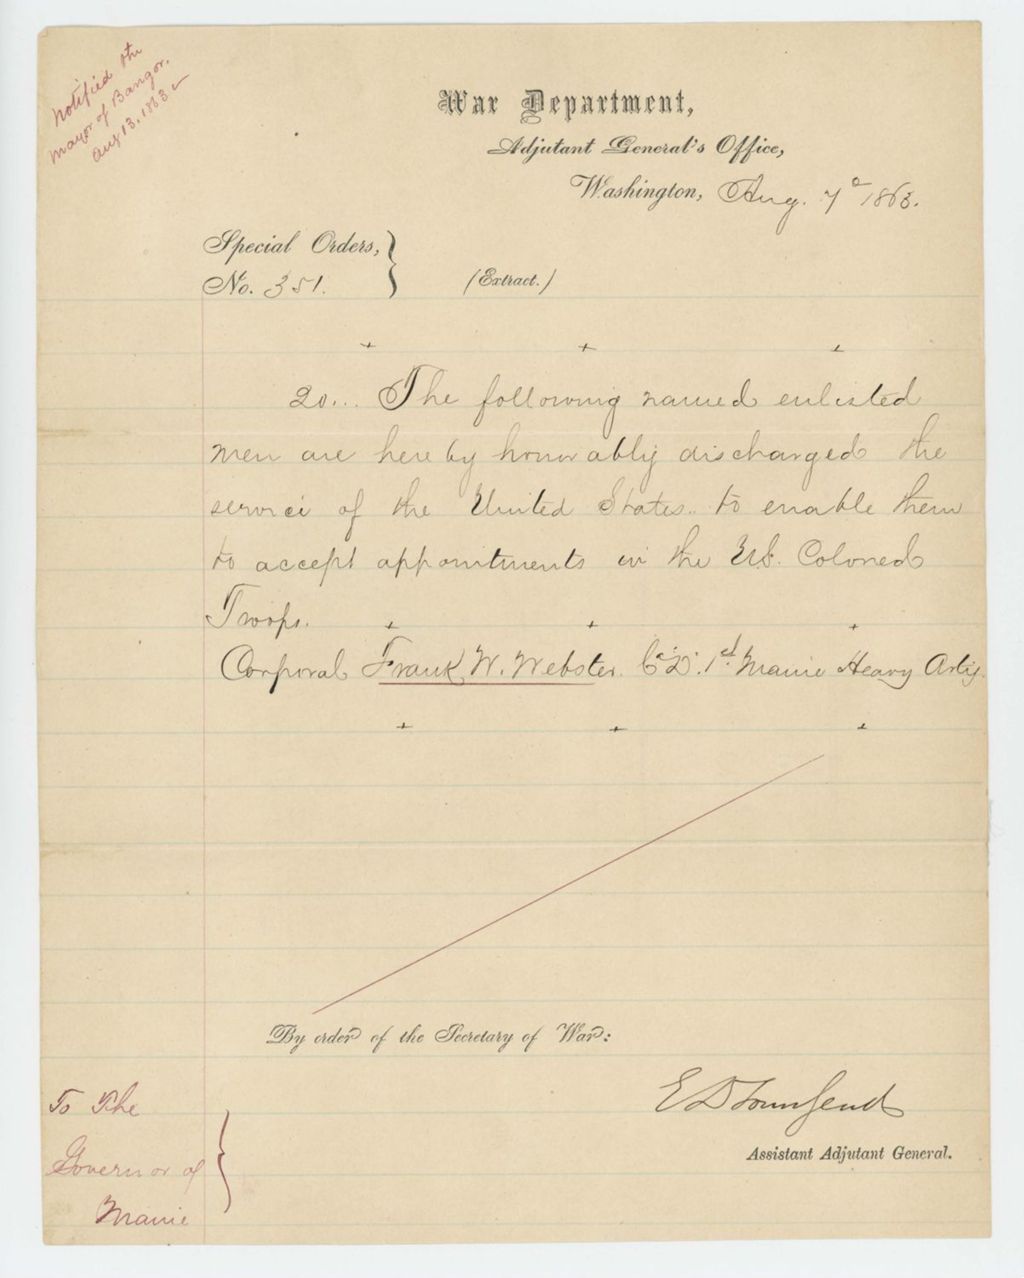 Notified the
Mayor of Bangor.
Aug 13, 1863
War Department,
Adjutant General's Office,
Washington, Aug. 7th 1863.
Special Orders,
No. 351.
(Extract.)
+ + +
20... The following named enlisted
men are hereby honorably discharged the
service of the United States.. to enable them
to accept appointments in the U.S. Colored
Troops. + + +
Corporal Frank W. Webster. Co "D". 1st Maine Heavy Arty.
+ + +
By order of the Secretary of War:
E D Townsend
Assistant Adjutant General.
To The
Governor of
Maine